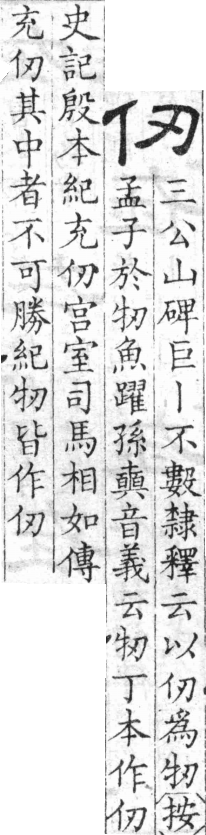 仞
三公山碑巨丨不數隸釋云以仞爲牣按
孟子於牣魚躍孫奭音義云牣丁本作仞
史記殷本紀充仞宮室司馬相如傳
充仞其中者不可勝紀牣皆作仞